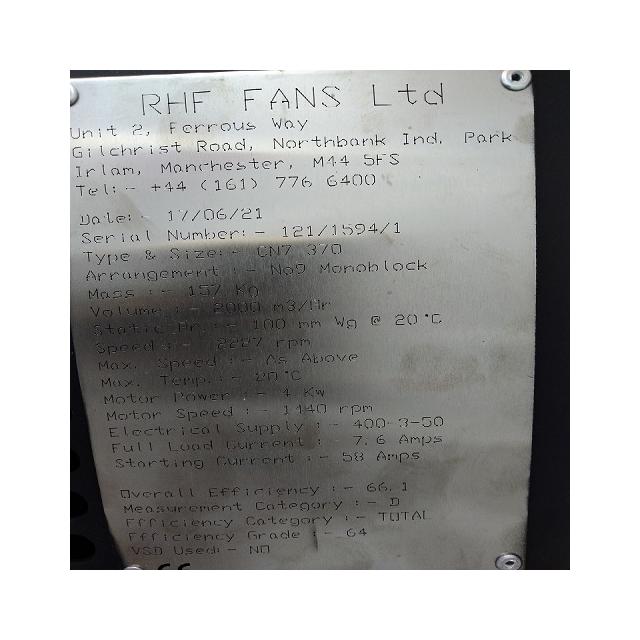 RHF FANS Ltd
Unit 2, Ferrous Way
Gilchrist Road, Northbank Ind. Park
Irlam, Manchester, M44 5FS
Tel:- +44 (161) 776 6400
Date:- 17/06/21
Serial Number:- 121/1594/1
Type & Size:- CN7 370
Arrangement :- No9 Monoblock
Mass :- 157 Kg
Volume :- 2000 m3/Hr
Static Pr. :- 100 mm Wg @ 20°C
Speed :- 2227 rpm
Max. Speed :- As Above
Max. Temp. :- 20°C
Motor Power :- 4 Kw
Motor Speed :- 1440 rpm
Electrical Supply :- 400-3-50
Full Load Current :- 7.6 Amps
Starting Current :- 58 Amps
Overall Efficiency :- 66.1
Measurement Category :- D
Efficiency Category :- TOTAL
Efficiency Grade :- 64
VSD Used:- NO
CE